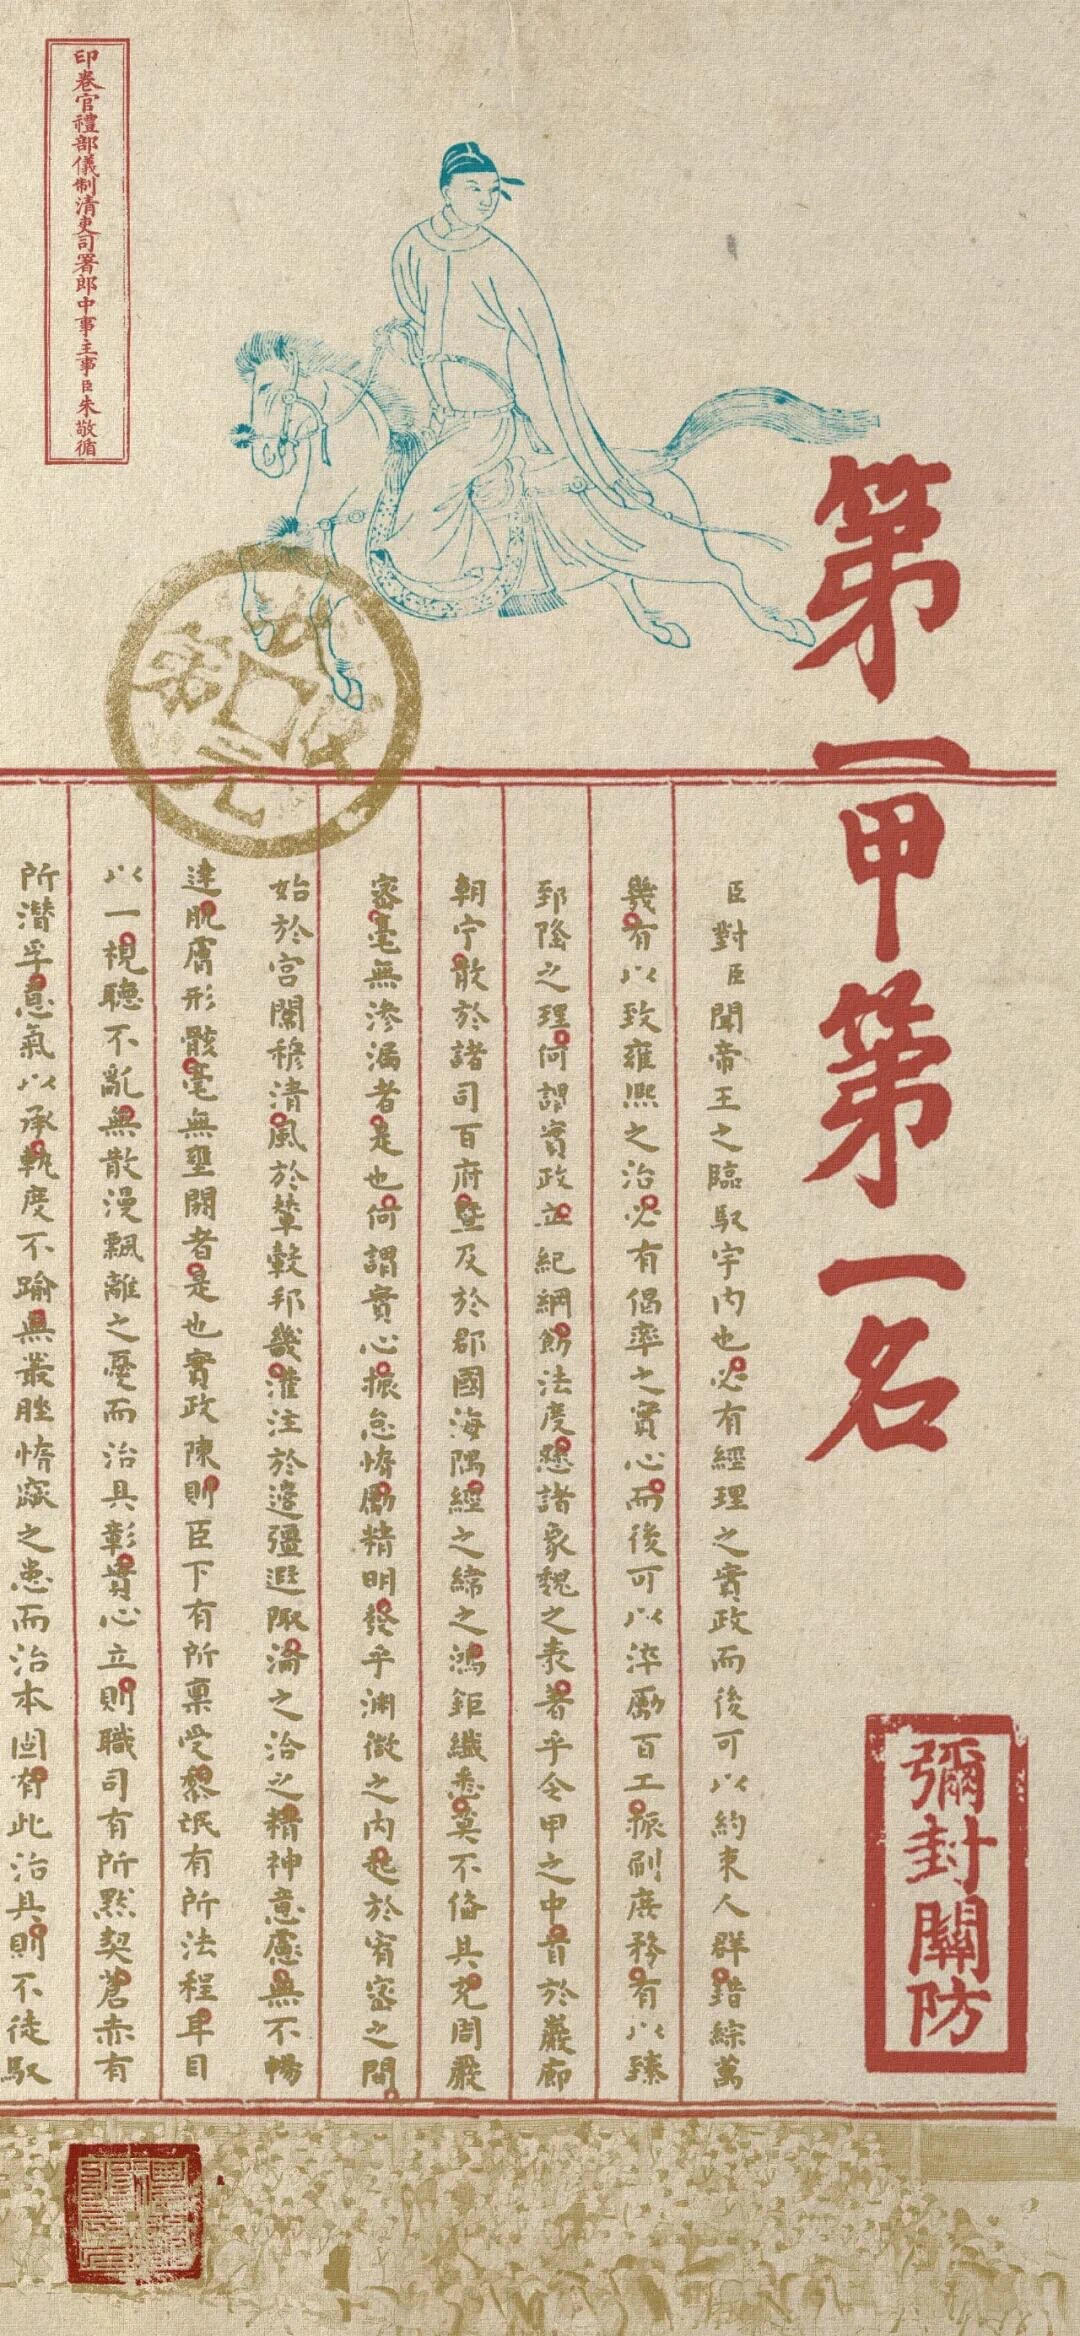 第一甲第一名
彌封關防
臣對臣聞帝王之臨馭宇內也必有經理之實政而後可以約束人群錯綜萬
幾有以致雍熙之治必有倡率之實心而後可以淬勵百工振刷庶務有以臻
郅隆之理何謂實政立紀綱飭法度懸諸象魏之表著乎令甲之中首於巖廊
朝宁散於諸司百府暨及於郡國海隅經之緯之鴻鉅纖悉莫不備具充周嚴
密毫無滲漏者是也何謂實心振怠惰勵精明發乎淵微之內起於宥密之間
始於宮闈穆清風於輦轂邦畿灌注於邊疆遐陬淪之洽之精神意慮無不暢
達肌膚形骸毫無壅閼者是也實政陳則臣下有所稟受黎氓有所法程耳目
以一視聽不亂無散漫飄離之憂而治具彰實心立則職司有所默契蒼赤有
所潛孚意氣以承軌度不踰無叢脞惰窳之患而治本固有此治具則不徒馭
印卷官禮部儀制清吏司署郎中事主事臣朱敬循